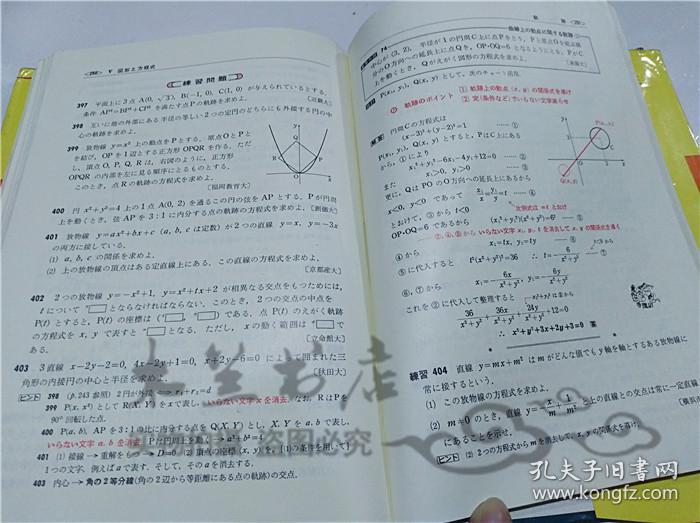 <252> V 図形と方程式
練習問題
397 平面上に3点 A(0, √3), B(−1, 0), C(1, 0) が与えられているとする.
条件 AP²=BP²+CP² を満たす点Pの軌跡を求めよ. [近畿大]
398 互いに他の外部にある半径の等しい2つの定円のどちらにも外接する円の中
心の軌跡を求めよ.
399 放物線 y=x² 上の動点をPとする. 原点OとPと
を結び, OPを1辺とする正方形OPQRを作る. ただ
し, 頂点O, P, Q, Rは, 右図のように, 正方形
OPQRの内部を左に見る順序にとるものとする.
このとき, 点Rの軌跡の方程式を求めよ.
[福岡教育大]
400 円 x²+y²=4 上の1点 A(0, 2) を通るこの円の弦をAPとする. Pが円周
上を動くとき, 弦APを3:1に内分する点の軌跡の方程式を求めよ.
401 放物線 y=ax²+bx+c (a, b, c は定数) が2つの直線 y=x, y=−3x
の両方に接している.
(1) a, b, c の関係を求めよ.
(2) 上の放物線の頂点はある定直線上にある. この直線の方程式を求めよ.
[京都産大]
402 2つの放物線 y=−x²+1, y=x²+tx+2 が相異なる交点をもつためには,
t について □とならなければならない. このとき, 2つの交点の中点を
P(t) とすると, P(t) の座標は (□, □) である. 点P(t) のえがく軌跡
の方程式を x, y で表すと □となる. ただし, x の動く範囲は □で
ある. [立命館大]
403 3直線 x−2y−2=0, 4x−2y+1=0, x+2y−6=0 によって囲まれた三
角形の内接円の中心と半径を求めよ. [秋田大]
ヒント 398 (p.243 参照) 2円が外接 → r₁+r₂=d
399 P(x, x²) として R(X, Y) を x で表し, いらない文字 x を消去. なお, RはPを
90°回転した点.
400 P(a, b), APを3:1の比に内分する点を Q(X, Y) とし, X, Y を a, b で表し,
いらない文字 a, b を消去. Pは円周上を動く → a²+b²=4
401 (1) 接線→重解をもつ→D=0 (2) 頂点の座標 (x, y) を, [(1)の条件を用いて]
1つの文字, 例えば a で表す. そして, その a を消去する.
403 内心→角の2等分線 (角の2辺から等距離にある点の軌跡) の交点.
曲線上の動点に関する軌跡
中心が (3, 2), 半径が1の円周C上に点Pをとり, Pと原点Oを結ぶ線
分のO方向への延長上に点Qを, OP・OQ=6 となるようにとる. PがC
上を動くとき, Qがえがく図形の方程式を求めよ.
P(x₁, y₁), Q(x, y) として, 次のチャート活用.
軌跡のポイント ① 軌跡上の動点 (x, y) の関係式を導け
② 定(条件など)でいらない文字減らせ
解答 円周Cの方程式は
(x−3)²+(y−2)²=1
P(x₁, y₁), Q(x, y) とすると, PはC上にある
から, ①により
x₁²+y₁²−6x₁−4y₁+12=0 ……②
また x₁>0, y₁>0 ……③
更に, QはPOのO方向への延長上にあるから
x<0, y<0 であって x₁/x=y₁/y=t
比例式は =t とおけ
とおけて, ③から t<0
OP・OQ=6 であるから (x₁²+y₁²)(x²+y²)=6²
②, ④, ⑤からいらない文字 x₁, y₁, t を消去して x, y の関係式を導く
④から x₁=tx, y₁=ty ……⑥
⑤に代入すると t²(x²+y²)²=36 ∴ t=−6/(x²+y²)
⑥, ⑦から x₁=−6x/(x²+y²), y₁=−6y/(x²+y²)
これを②に代入して整理すると
36/(x²+y²)+36x/(x²+y²)+24y/(x²+y²)+12=0
∴ x²+y²+3x+2y+3=0 答
練習 404 直線 y=mx+m² は m がどんな値でも y 軸を軸とするある放物線に
常に接するという.
(1) この放物線の方程式を求めよ.
(2) m≠0 のとき, 直線 y=−x/m+1/m² と上の直線との交点は常に一定直線
にあることを示せ.
ヒント (2) 2つの方程式から m を消去して, x, y の関係式を導く.
孔夫子旧书网
www.kongfz.com